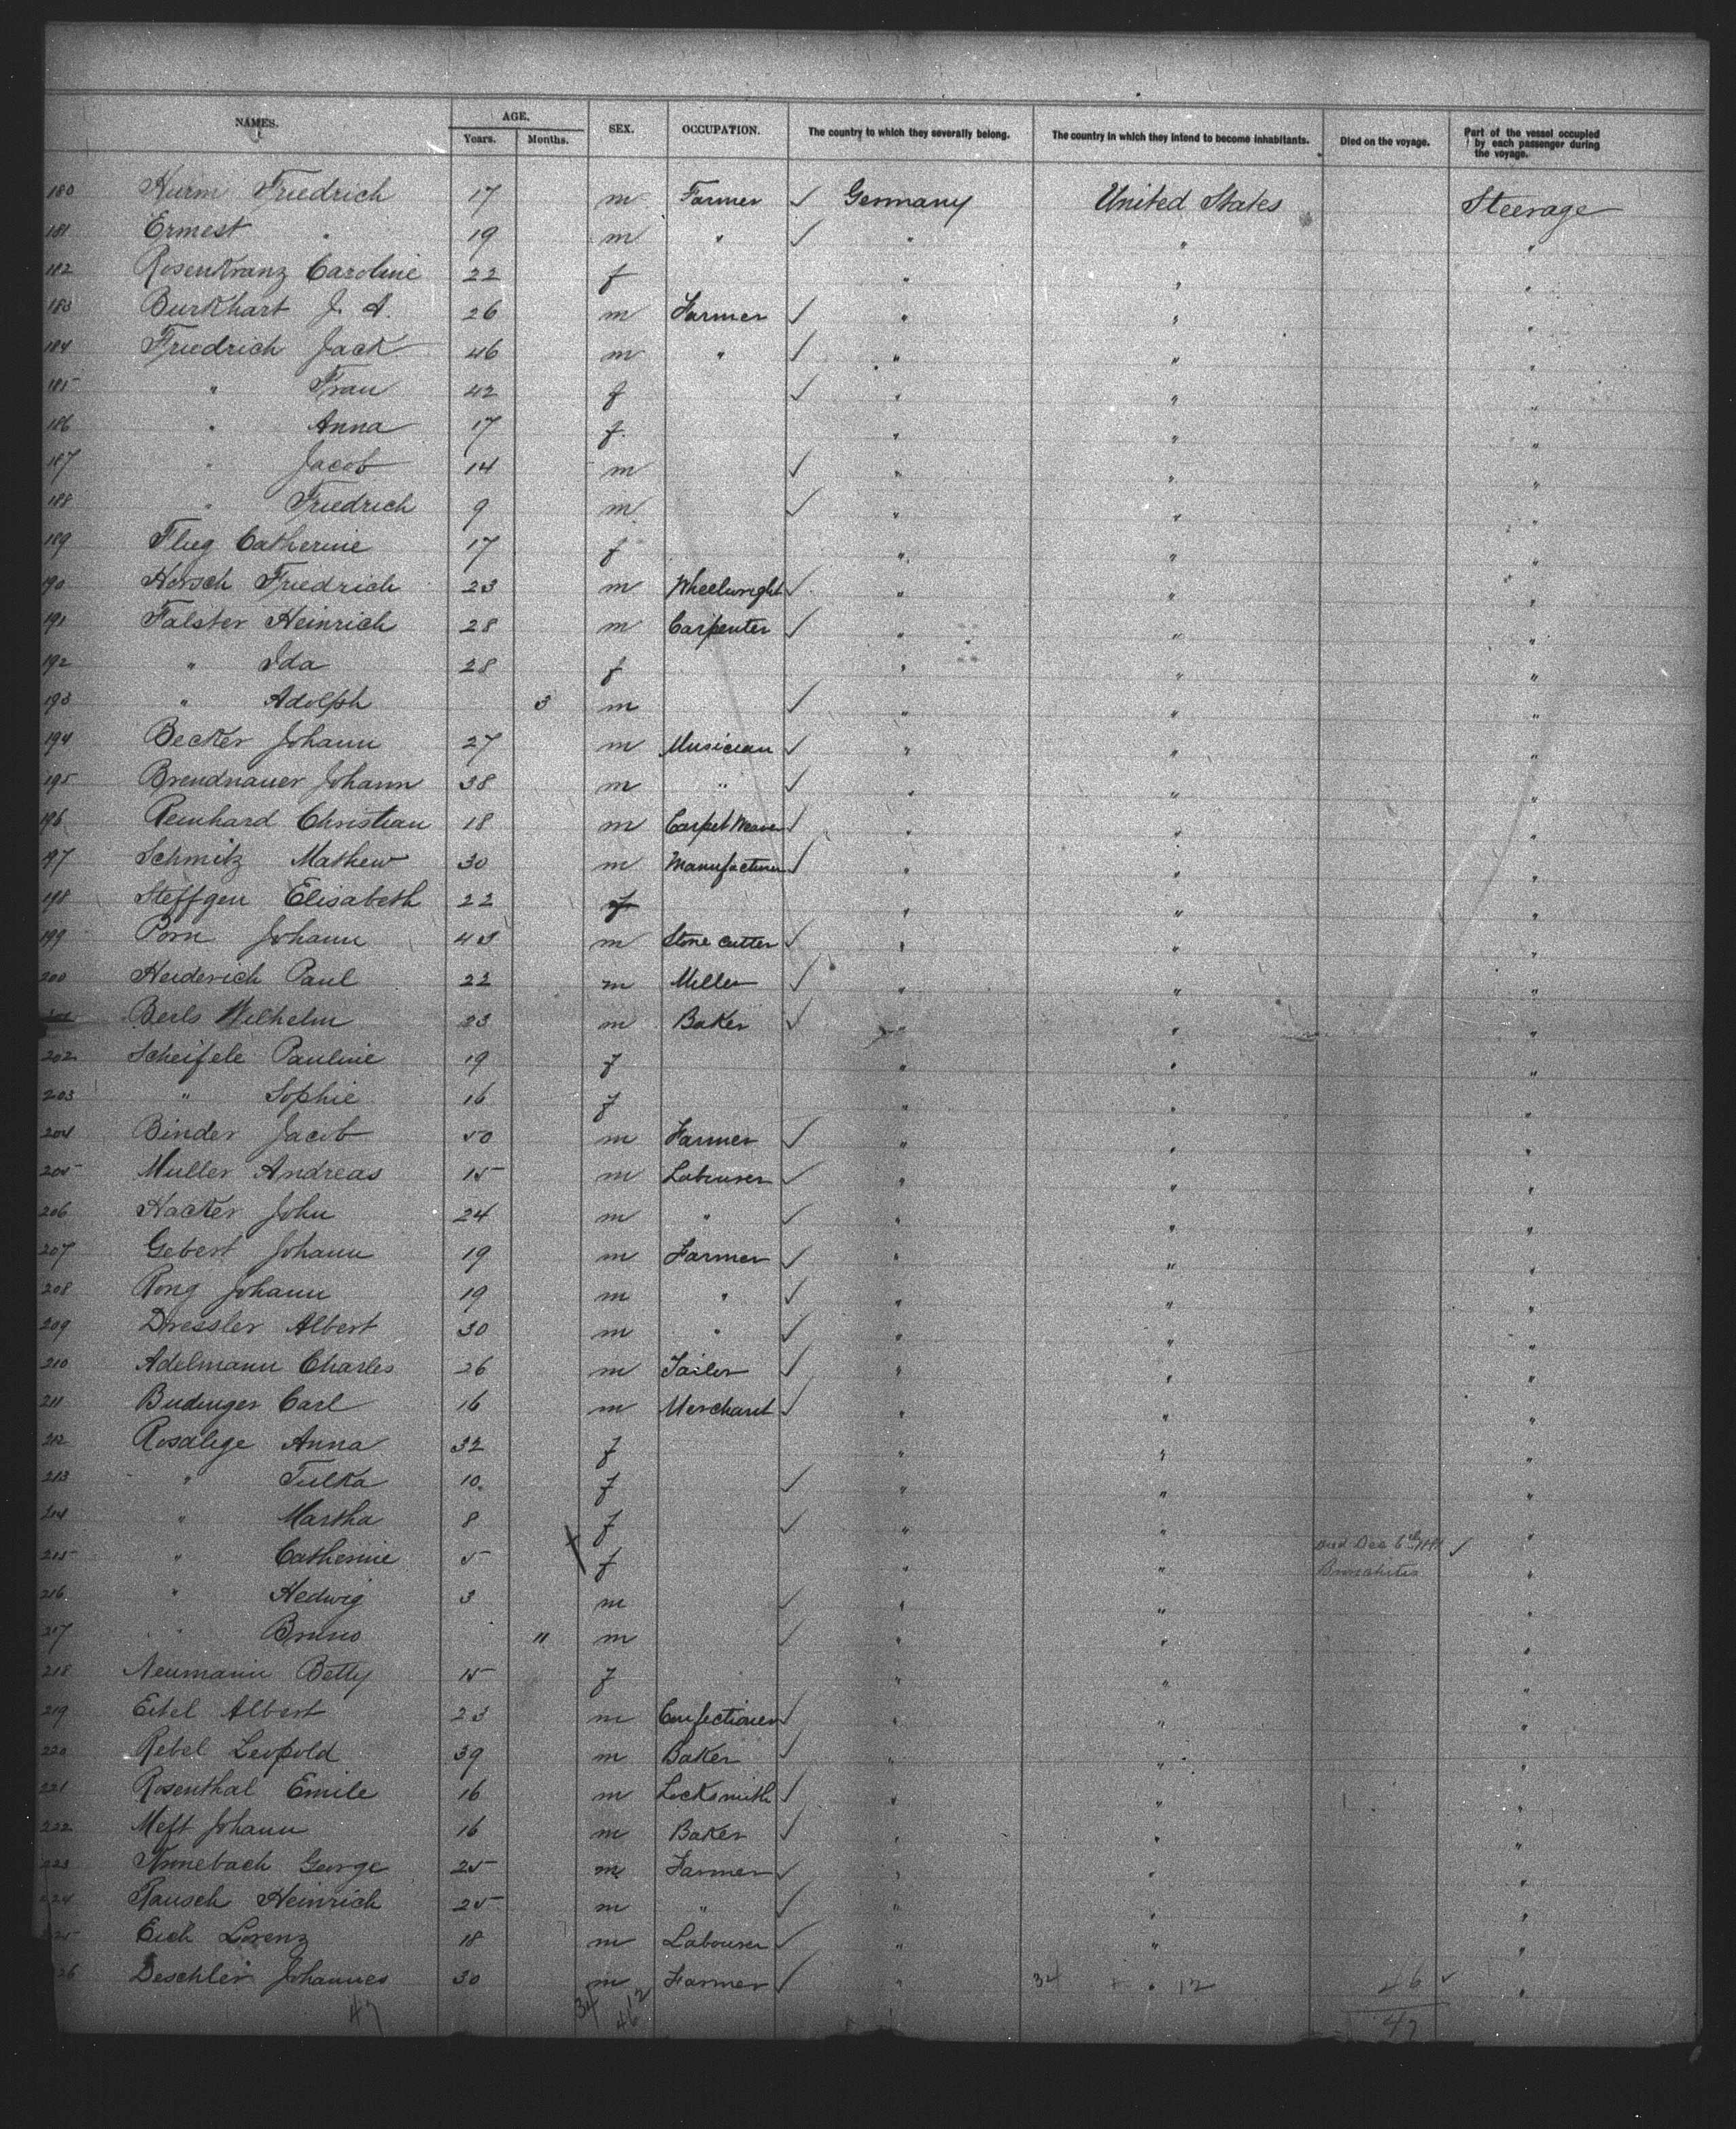 NAMES. AGE. Years. Months. SEX. OCCUPATION. The country to which they severally belong. The country in which they intend to become inhabitants. Died on the voyage. Part of the vessel occupied by each passenger during the voyage.
180 Hurm Friedrich 17 m Farmer ✓ Germany United States Steerage
181 Ernest " 19 m " ✓ " " "
182 Rosenkranz Caroline 22 f " " "
183 Burkhart J. A. 26 m Farmer ✓ " " "
184 Friedrich Jack 46 m " ✓ " " "
185 " Frau 42 f ✓ " " "
186 " Anna 17 f. " " "
187 " Jacob 14 m ✓ " " "
188 " Friedrich 9 m ✓ " " "
189 Flieg Catherine 17 f " " "
190 Horsch Friedrich 23 m Wheelwright ✓ " " "
191 Falster Heinrich 28 m Carpenter ✓ " " "
192 " Ida 28 f " " "
193 " Adolph 3 m ✓ " " "
194 Becker Johann 27 m Musician ✓ " " "
195 Brendnauer Johann 38 m " ✓ " " "
196 Reinhard Christian 18 m Carpet Weaver ✓ " " "
197 Schmitz Mathew 30 m Manufacturer ✓ " " "
198 Steffgen Elisabeth 22 f " " "
199 Porn Johann 43 m Stone cutter ✓ " " "
200 Heiderich Paul 22 m Miller ✓ " " "
Berls Wilhelm 23 m Baker ✓ " " "
202 Scheifele Pauline 19 f " " "
203 " Sophie 16 f " " "
204 Binder Jacob 50 m Farmer ✓ " " "
205 Muller Andreas 15 m Labourer ✓ " " "
206 Hacker John 24 m " ✓ " " "
207 Gebert Johann 19 m Farmer ✓ " " "
208 Rong Johann 19 m " ✓ " " "
209 Dressler Albert 30 m " ✓ " " "
210 Adelmann Charles 26 m Tailor ✓ " " "
211 Budinger Carl 16 m Merchant ✓ " " "
212 Rosalege Anna 32 f " " "
213 " Tulka 10 f ✓ " " "
214 " Martha 8 f ✓ " " "
215 " Catherine 5 f " " died Dec 6th ✓ Bronchitis "
216 " Hedwig 3 m ✓ " " "
217 " Bruno 11 m ✓ " " "
218 Neumann Betty 15 f " " "
219 Eitel Albert 23 m Confectioner ✓ " " "
220 Rebel Leopold 39 m Baker ✓ " " "
221 Rosenthal Emile 16 m Locksmith ✓ " " "
222 Meft Johann 16 m Baker ✓ " " "
223 Annebach George 25 m Farmer ✓ " " "
224 Rausch Heinrich 25 m " ✓ " " "
225 Eich Lorenz 18 m Labourer ✓ " " "
226 Deschler Johannes 30 m Farmer ✓ " 34 + " 12 46 ✓ "
47 34 12 46 47